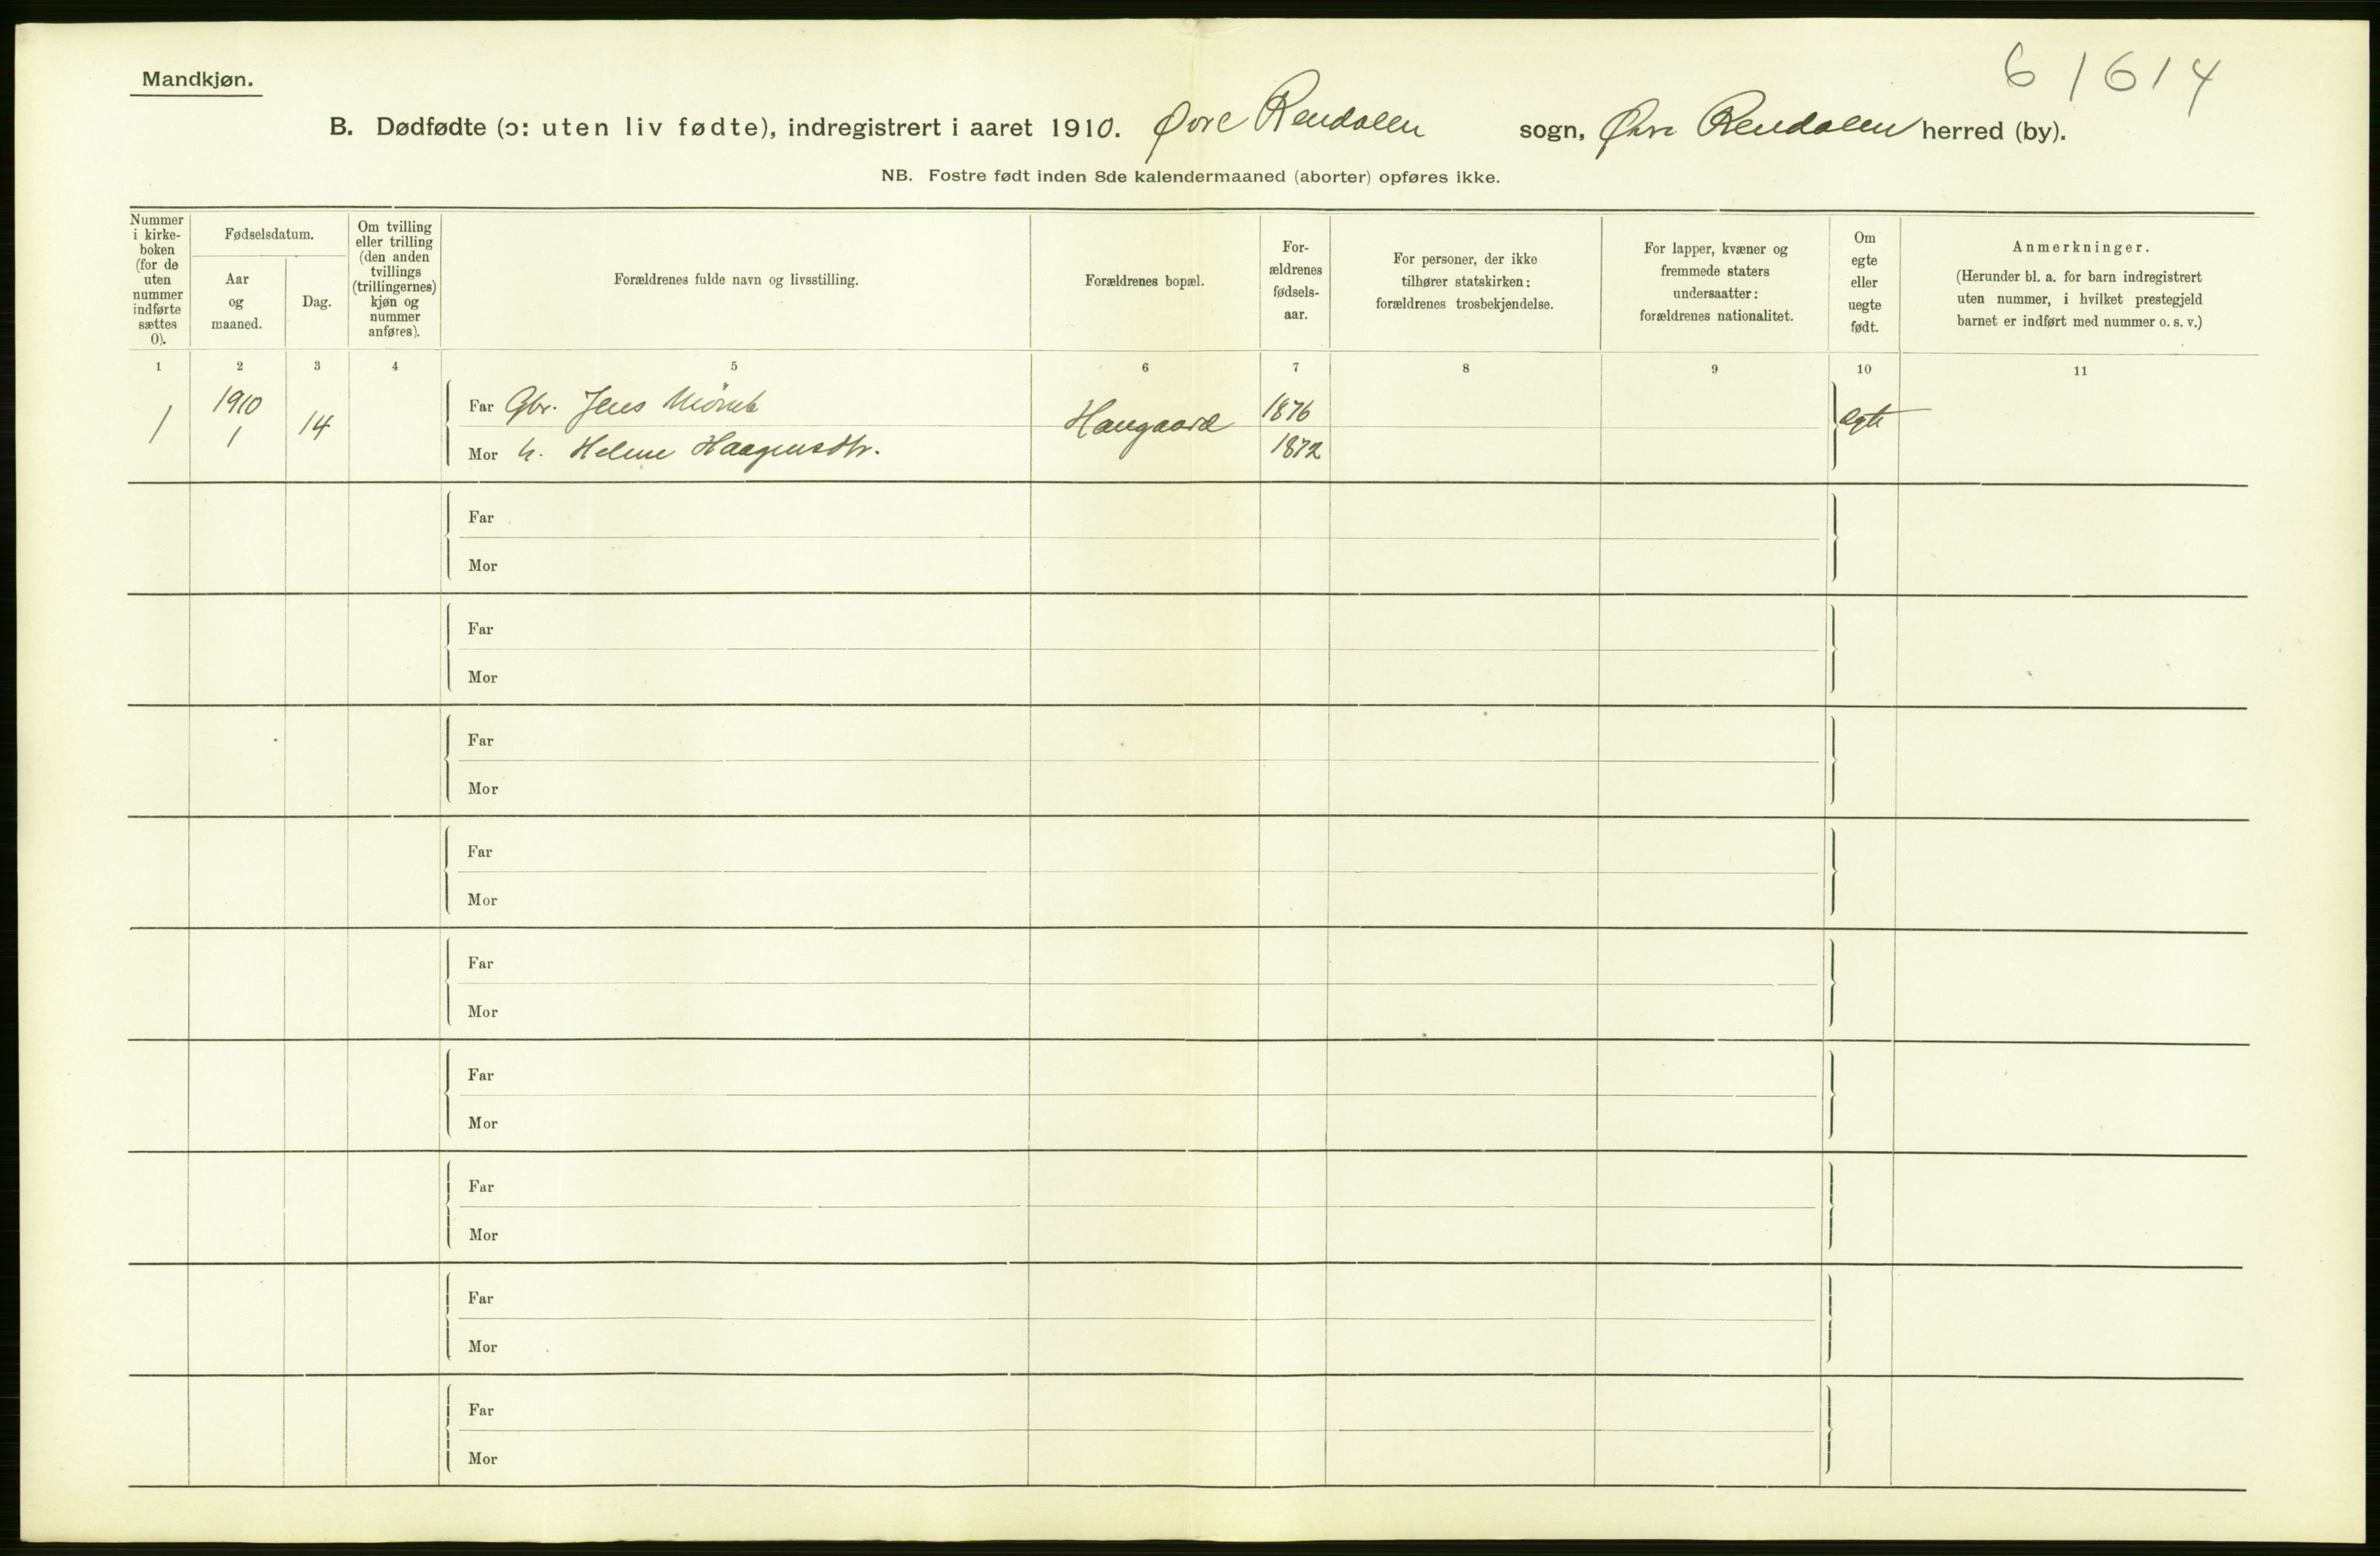 6 1614
Mandkjøn.
B. Dødfødte (ɔ: uten liv fødte), indregistrert i aaret 1910. Øvre Rendalen sogn, Øvre Rendalen herred (by).
NB. Fostre født inden 8de kalendermaaned (aborter) opføres ikke.
Nummer
i kirke-
boken
(for de
uten
nummer
indførte
sættes
0).
Fødselsdatum.
Aar
og
maaned.
Dag.
Om tvilling
eller trilling
(den anden
tvillings
(trillingernes)
kjøn og
nummer
anføres).
Forældrenes fulde navn og livsstilling.
Forældrenes bopæl.
For-
ældrenes
fødsels-
aar.
For personer, der ikke
tilhører statskirken:
forældrenes trosbekjendelse.
For lapper, kvæner og
fremmede staters
undersaatter:
forældrenes nationalitet.
Om
egte
eller
uegte
født.
Anmerkninger.
(Herunder bl. a. for barn indregistrert
uten nummer, i hvilket prestegjeld
barnet er indført med nummer o. s. v.)
1 2 3 4 5 6 7 8 9 10 11
1
1910
1
14
Far Gbr. Jens
Mor h. Helene Haagensdtr.
Haugaard
1876
1872
egte
Far
Mor
Far
Mor
Far
Mor
Far
Mor
Far
Mor
Far
Mor
Far
Mor
Far
Mor
Far
Mor